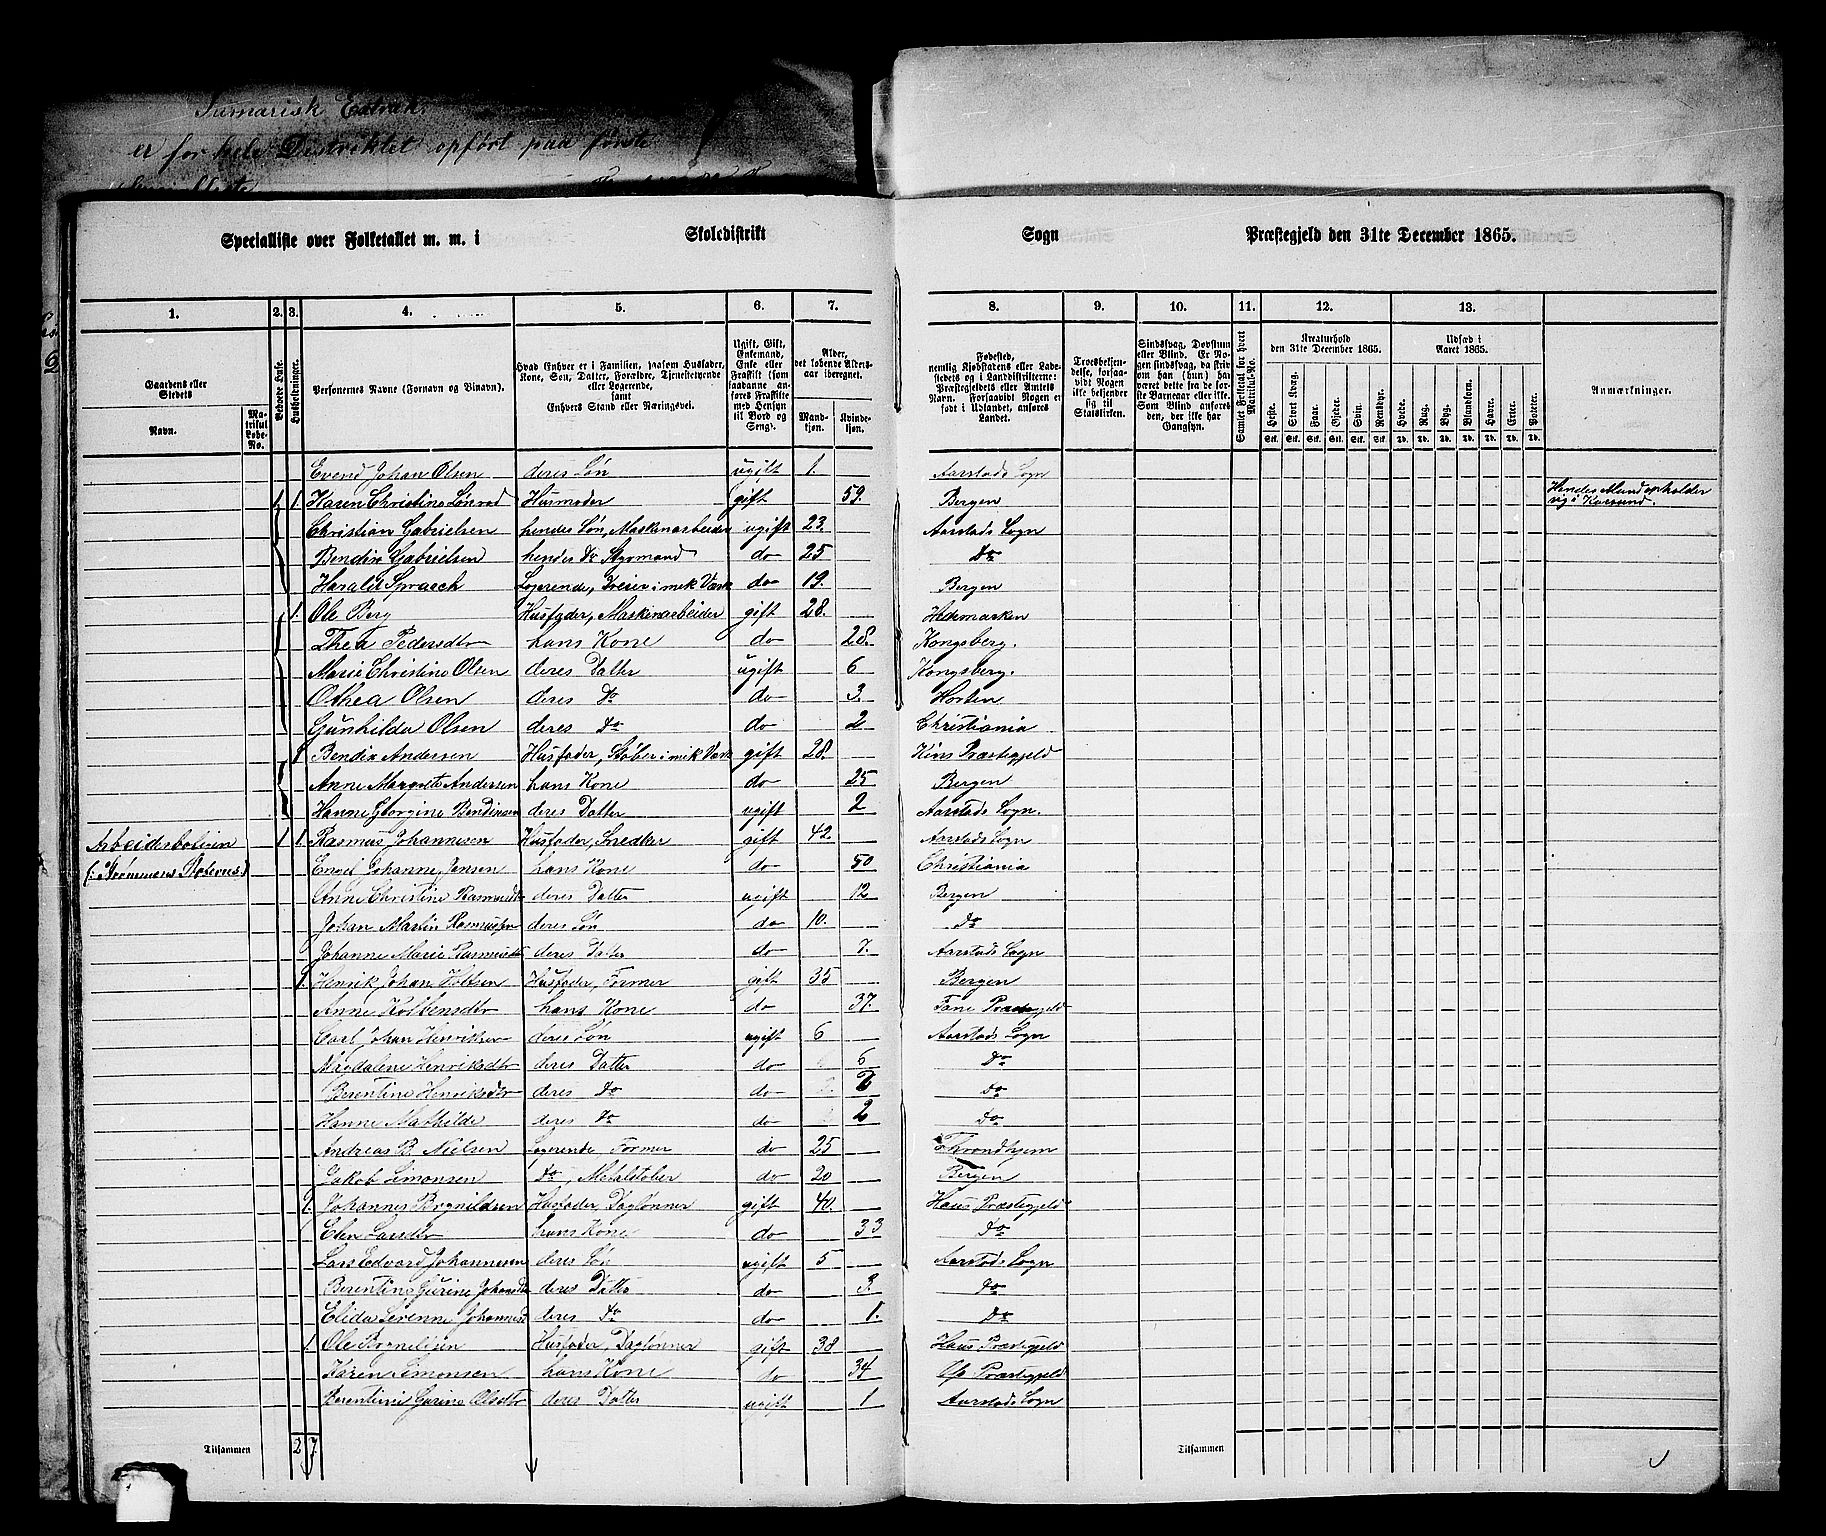 Sumarisk Extrakt
er for hele Distriktet opført paa første
Specialliste over Folketallet m. m. i Skoledistrikt Sogn Præstegjeld den 31te December 1865.
1. 2. 3. 4. 5. 6. 7. 8. 9. 10. 11. 12. 13.
Gaardens eller Stedets Navn. Matrikul Løbe-No.
Beboede Huse.
Husholdninger.
Personernes Navne (Fornavn og Binavn).
Hvad Enhver er i Familien, saasom Husfader, Kone, Søn, Datter, Forældre, Tjenestetyende eller Logerende, samt Enhvers Stand eller Næringsvei.
Ugift, Gift, Enkemand, Enke eller Fraskilt (som saadanne anføres Fraskilte med Hensyn til Bord og Seng).
Alder, det løbende Aldersaar iberegnet. Mandkjøn. Kvindekjøn.
Fødested, nemlig Kjøbstadens eller Ladestedets og i Landdistrikterne: Præstegjeldets eller Amtets Navn. Forsaavidt Nogen er født i Udlandet, anføres Landet.
Troesbekjendelse, forsaavidt Nogen ikke bekjender sig til Statskirken.
Sindssvag, Døvstum eller Blind. Er Nogen sindssvag, da skriv om han (hun) har været dette fra de første Barneaar eller ikke. Som Blind anføres den, der ikke har Gangsyn.
Samlet Folketal for hvert Matrikul-No.
Kreaturhold den 31te December 1865. Heste. Stort Kvæg. Faar. Gjeder. Svin. Rensdyr.
Udsæd i Aaret 1865. Hvede. Rug. Byg. Blandkorn. Havre. Erter. Poteter.
Anmærkninger.
Evend Johan Olsen deres Søn ugift 1. Aarstads Sogn
1 1. Karen Christine Lønrod Husmoder gift 59. Bergen Hendes Mand opholder sig i
Christian Gabrielsen hendes Søn, Maskinarbeider ugift 23. Aarstads Sogn
Bendix Gabrielsen hendes Do Styrmand do 25 Do
Harald Spraech Logerende, Dreier i mek Værk do 19. Bergen
1. Ole Berg Husfader, Maskinarbeider gift 28. Hedemarken
Thea Pedersdtr hans Kone do 28. Kongsberg.
Marie Christine Olsen deres Datter ugift 6 Kongsberg.
Othea Olsen deres Do do 3. Horten
Gunhilda Olsen deres Do do 2 Christiania
1 Bendix Andersen Husfader, Støber i mek Værk gift 28. Kins Præstegjeld
Anne Margrete Andersen hans Kone do 25 Bergen
Hanne Georgine Bendixsen deres Datter ugift 2 Aarstads Sogn.
Arbeiderbolien 1 1. Rasmus Johannesen Husfader, Snedker gift 42. Aarstads Sogn
(: Strømmens :) Engel Johanne Jansen hans Kone do 50 Christiania
Anne Christine Rasmusdtr deres Datter ugift 12 Bergen
Johan Martin Rasmussen deres Søn do 10. Do
Johanne Marie Rasmusdtr deres Datter do 7. Aarstads Sogn
1. Henrik Johan Holtsen Husfader, Former gift 35 Bergen
Anne Kolbensdtr hans Kone do 37. Fane Præstegjeld
Carl Johan Henriksen deres Søn ugift 6 Aarstads Sogn
Magdalene Henriksdtr deres Datter do 6 Do
Berentine Henriksdtr deres Do do 2 Do
Hanne Mathilde deres Do do 2 Do
Andreas B. Nielsen Logerende Former do 25 Throndhjem
Jakob Simonsen Do, Metalstøber do 20 Bergen
1. Johannes Brynildsen Husfader, Daglønner gift 40. Haus Præstegjeld
Elen Larsdtr hans Kone do 33 Do
Lars Edvard Johannesen deres Søn ugift 5 Aarstads Sogn
Berentine Gurine Johansdtr deres Datter do 3. Do
Elida Severine Johannesd deres Do do 1. Do
1 Ole Brynildsen Husfader, Daglønner gift 38 Haus Præstegjeld
Karen Simonsen hans Kone do 34 Os Præstegjeld
Berentine Gurine Olsdtr deres Datter ugift 1 Aarstads Sogn
Tilsammen 2 7. Tilsammen